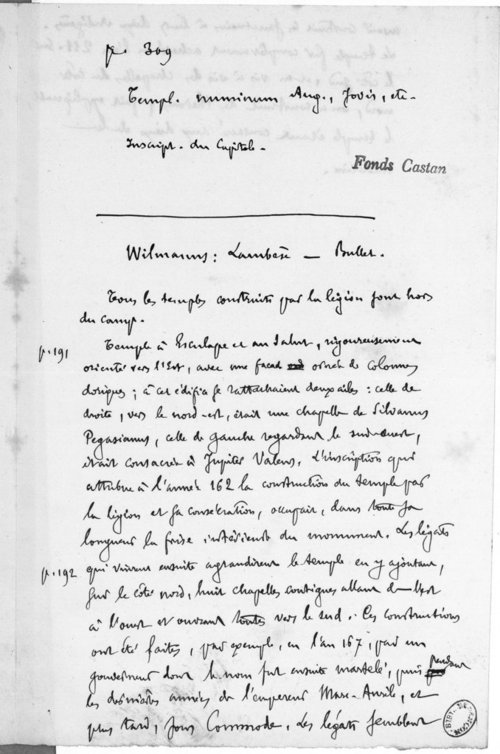 p. 309
Templ. numinum Aug., Jovis, etc.
Inscript. du Capitole.
Fonds Castan
Wilmanns : Lambèse — Bullet.
Tous les temples construits par la légion sont hors
du camp.
p. 191
Temple à Esculape et au Salut, rigoureusement
orienté vers l'Est, avec une façade ornée de colonnes
doriques ; à cet édifice se rattachaient deux ailes : celle de
droite, vers le nord-est, était une chapelle de Silvanus
Pegasianus, celle de gauche regardant le sud-ouest,
était consacrée à Jupiter Valens. L'inscription qui
attribue à l'année 162 la construction du temple par
la légion et sa consécration, occupait, dans toute sa
longueur la frise intérieure du monument. Les légats
p. 192
qui vinrent ensuite agrandirent le temple en y ajoutant,
sur le côté nord, huit chapelles contigues allant de l'Est
à l'ouest et ouvrant toutes vers le sud. Ces constructions
ont été faites, par exemple, en l'an 167, par un
gouverneur dont le nom fut ensuite martelé, puis pendant
les dernières années de l'empereur Marc-Aurèle, et
plus tard, sous Commode. Les légats semblent